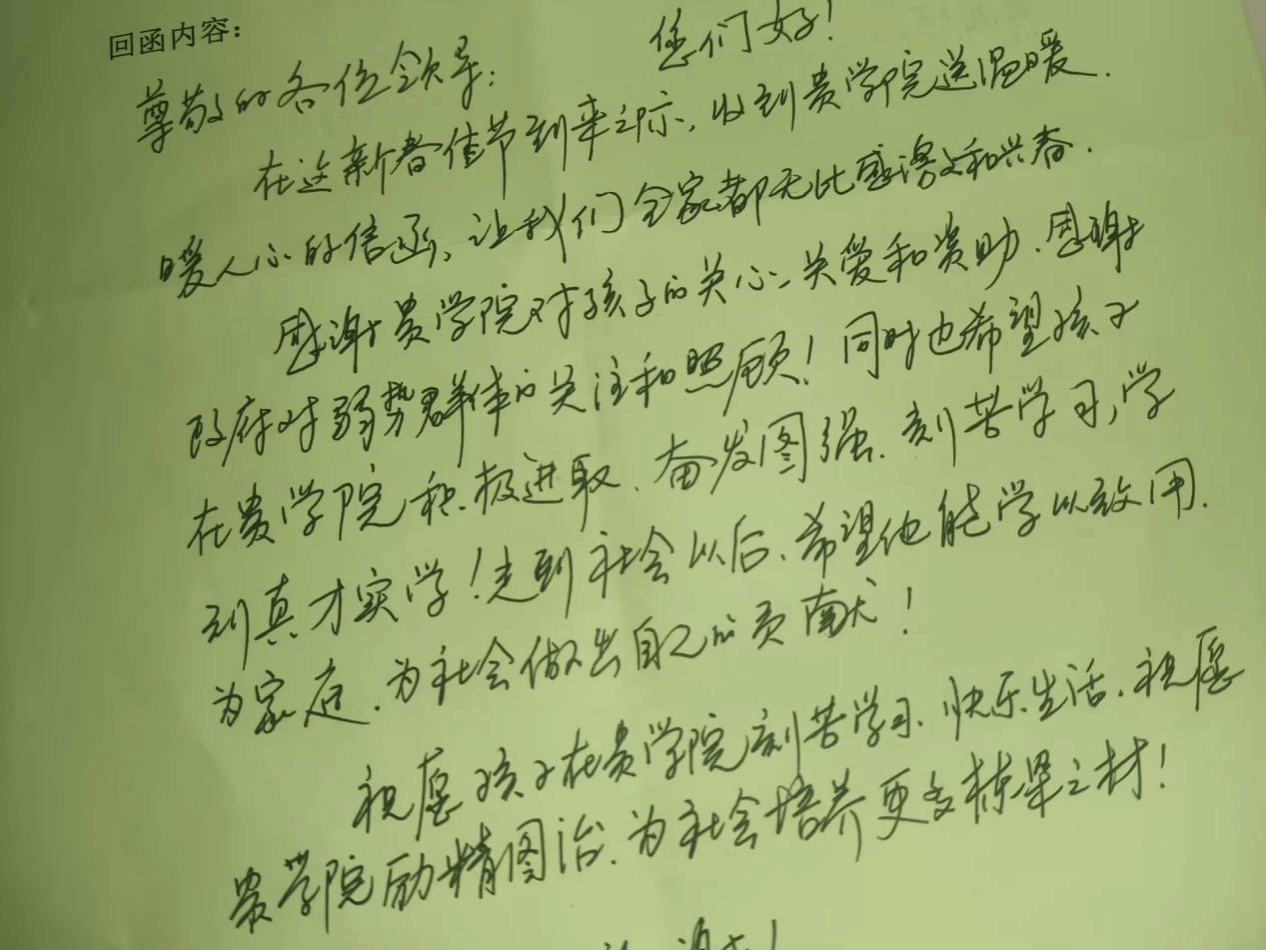 回函内容：
您们好！
尊敬的各位领导：
在这新春佳节到来之际，收到贵学院送温暖.
暖人心的信函，让我们全家都无比感激和兴奋.
感谢贵学院对孩子的关心、关爱和资助.感谢
政府对弱势群体的关注和照顾！同时也希望孩子
在贵学院积极进取、奋发图强.刻苦学习，学
到真才实学！走到社会以后、希望他能学以致用.
为家庭.为社会做出自己的贡献！
祝愿孩子在贵学院刻苦学习、快乐生活.祝愿
贵学院励精图治.为社会培养更多栋梁之材！